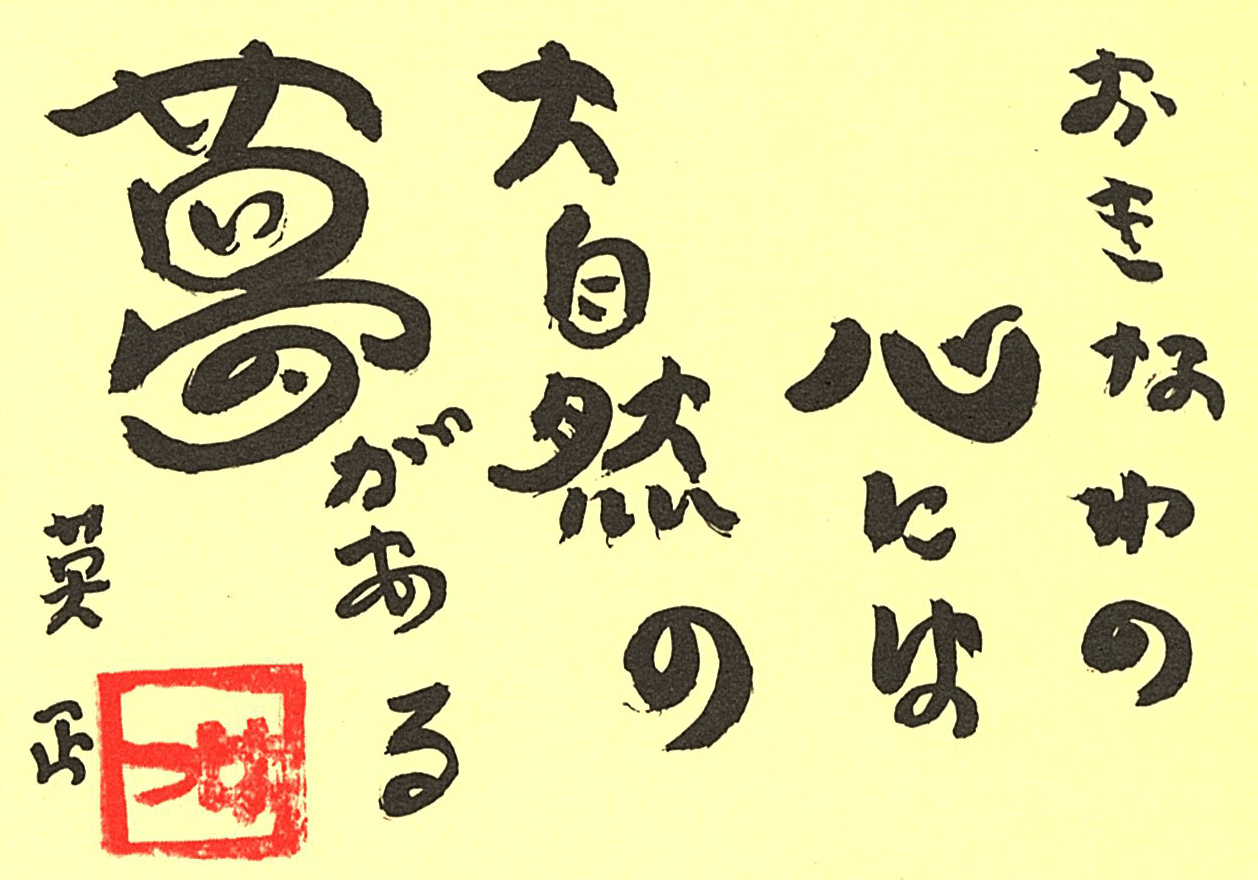 おきなわの
心には
大自然の
夢がある
英